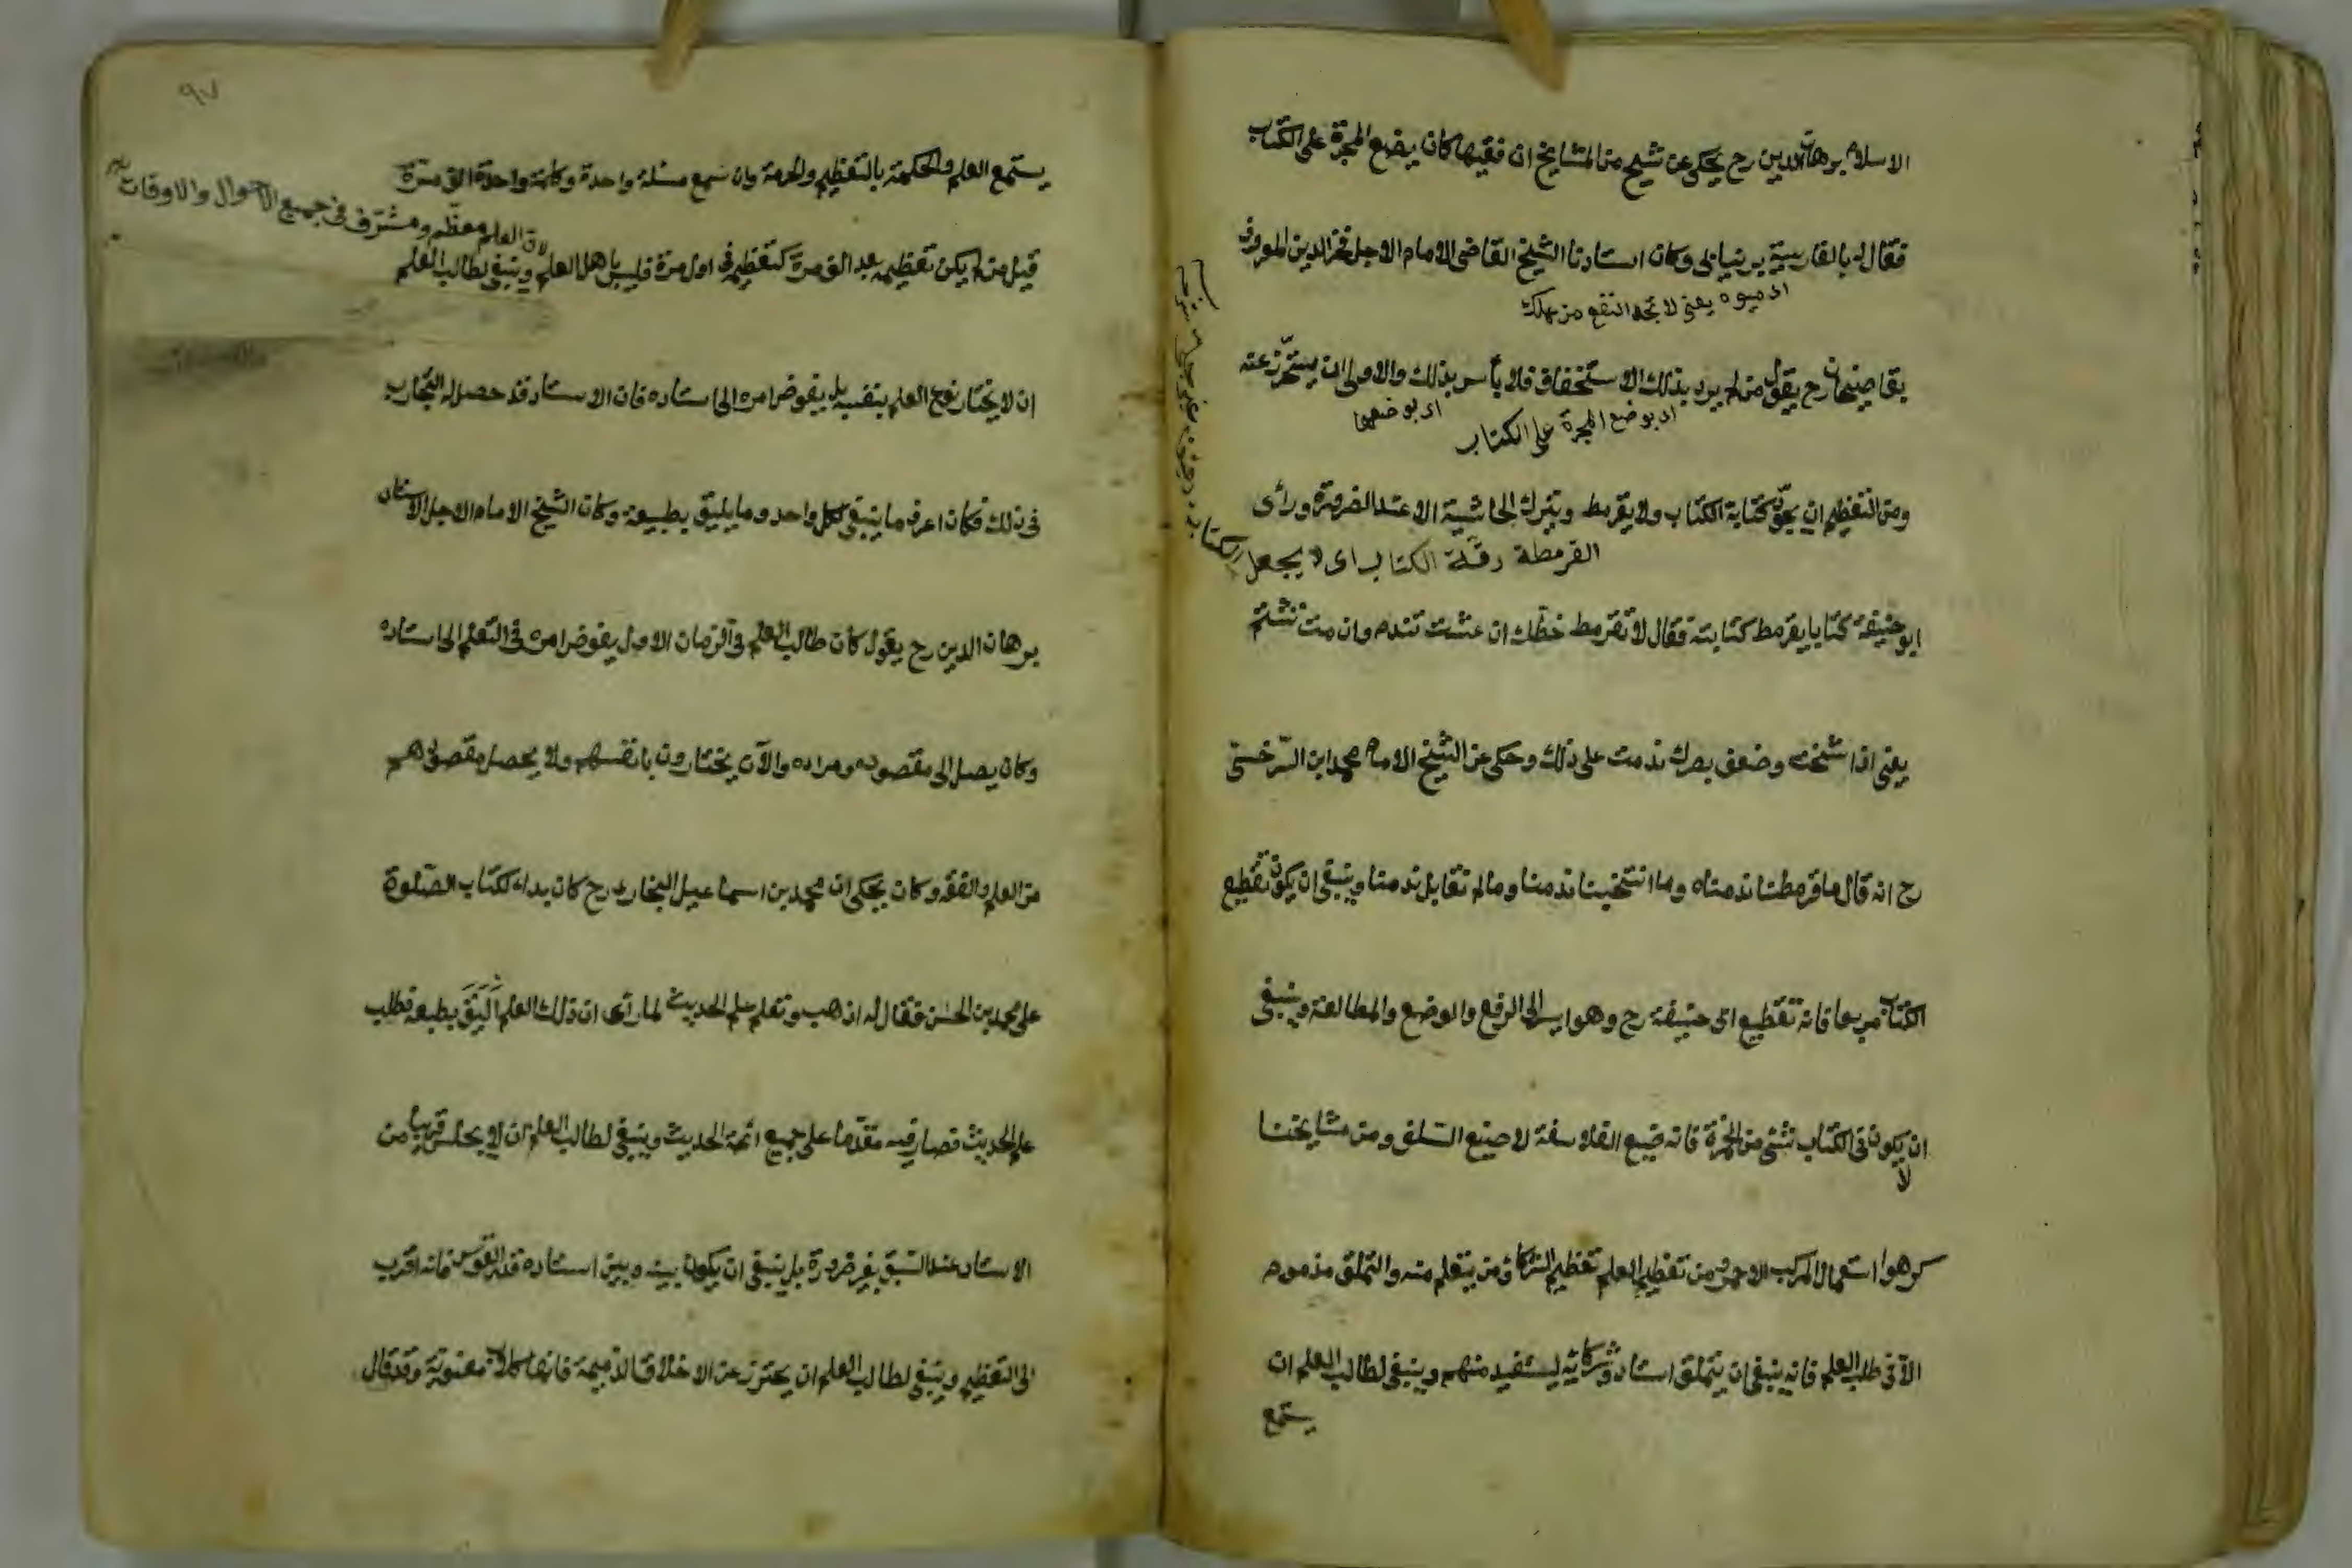 الاسلام برهان الدين رح يحكى عن شيخ من المشايخ ان فقيها كان يضع المحبرة على الكتاب
فقال له بالفارسية بر نيابى وكان استادنا الشيخ القاضى الامام الاجل فخر الدين المعروف
اى ميوه يعنى لا تجد النفع من عملك
بقاضيخان رح يقول من لم يرد بذلك الاستخفاف فلا بأس بذلك والاولى ان يتحرّز عنه
اى بوضع المحبرة على الكتاب
اى بوضعها
ومن التعظيم ان يجوّد كتابة الكتاب ولا يقرمط ويترك الحاشية الا عند الضرورة ورأى
القرمطة دقّة الكتاب اى لا يجعل الكتابة دقيقة غير جلى
ابو حنيفة كتابا يقرمط كتابته فقال لا تقرمط خطّك ان عشت تندم وان مت تشتم
يعنى اذا شخت وضعف بصرك ندمت على ذلك وحكى عن الشيخ الامام محمد ابن السّرخسىّ
رح انه قال ما قرمطنا ندمناه وما انتخبنا ندمنا وما لم نقابل ندمنا وينبغى ان يكون تقطيع
الكتاب مربعا فانه تقطيع ابى حنيفة رح وهو ايسر الى الرفع والوضع والمطالعة وينبغى
ان لا يكون فى الكتاب شئ من الحمرة فانه صنيع الفلاسفة لا صنيع السّلف ومن مشايخنا
كرهوا استعمال المركب الاحمر ومن تعظيم العلم تعظيم الشركاء ومن يتعلم منه والتملق مذموم
الّا فى طلب العلم فانه ينبغى ان يتملق استاده وشركائه ليستفيد منهم وينبغى لطالب العلم ان
يستمع
٩٧
يستمع العلم والحكمة بالتعظيم والحرمة وان سمع مسئلة واحدة وكلمة واحدة الف مرّة
لان العلم معظّم ومشرّف فى جميع الاحوال والاوقات
قيل من لم يكن تعظيمه بعد الف مرّة كتعظيمه فى اول مرة فليس باهل العلم وينبغى لطالب العلم
ان لا يختار نوع العلم بنفسه بل يفوض امره الى استاده فان الاستاد قد حصل له التجارب
فى ذلك فكان اعرف ما ينبغى لكل واحد وما يليق بطبيعته وكان الشيخ الامام الاجل الاستاد
برهان الدين رح يقول كان طالب العلم فى الزمان الاول يفوض امره فى التعلم الى استاده
وكان يصل الى مقصوده ومراده والآن يختارون بانفسهم ولا يحصل مقصودهم
من العلم والفقه وكان يحكى ان محمد بن اسماعيل البخارى رح كان بداء لكتاب الصّلوة
على محمد بن الحسن فقال له اذهب وتعلم علم الحديث لما رأى ان ذلك العلم اليق بطبعه فطلب
علم الحديث فصار فيه مقدّما على جميع ائمة الحديث وينبغى لطالب العلم ان لا يجلس قريبا من
الاستاد عند السّبق بغير ضرورة بل ينبغى ان يكون بينه وبين استاده قدر القوس فانه اقرب
الى التعظيم وينبغى لطالب العلم ان يحترز عن الاخلاق الذّميمة فانها كلاب معنوية وقد قال